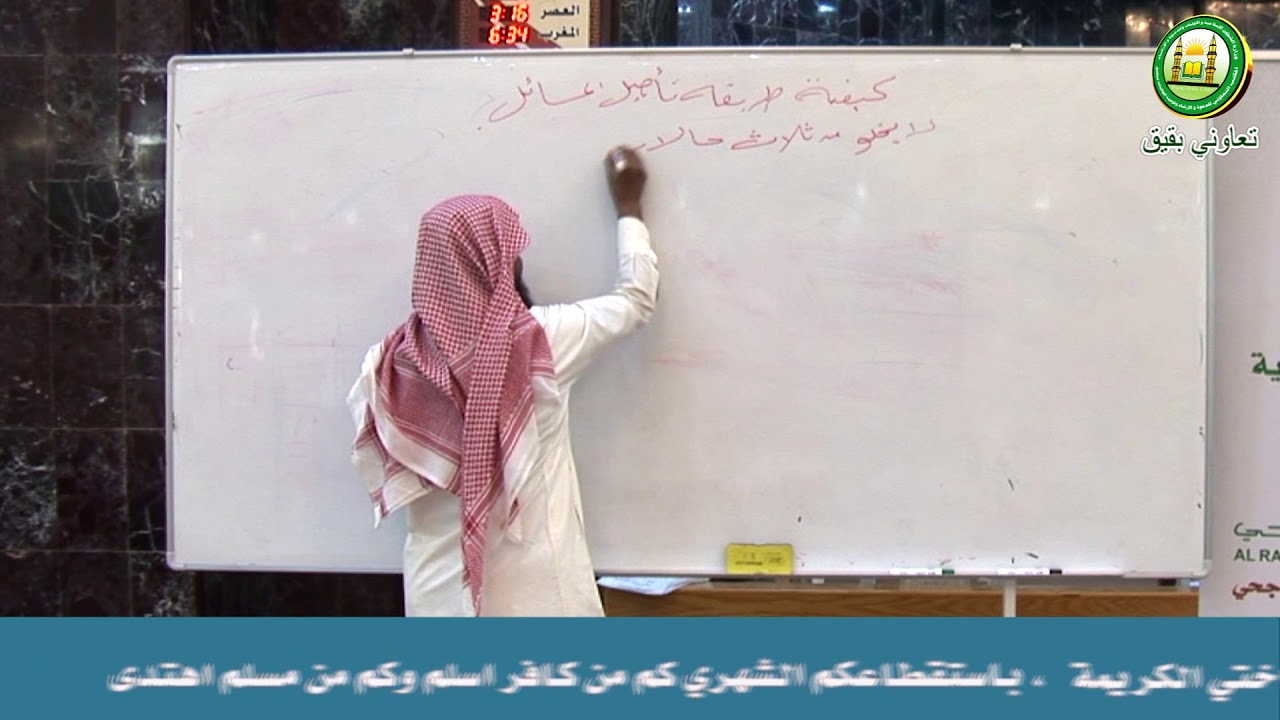 العصر 3:16
المغرب 6:34
كيفية طريقة تأصيل المسائل
لا يخلو من ثلاث حالات
تعاوني بقيق
ية
حي
AL RA
جحي
ختي الكريمة - باستقطاعكم الشهري كم من كافر اسلم وكم من مسلم اهتدى